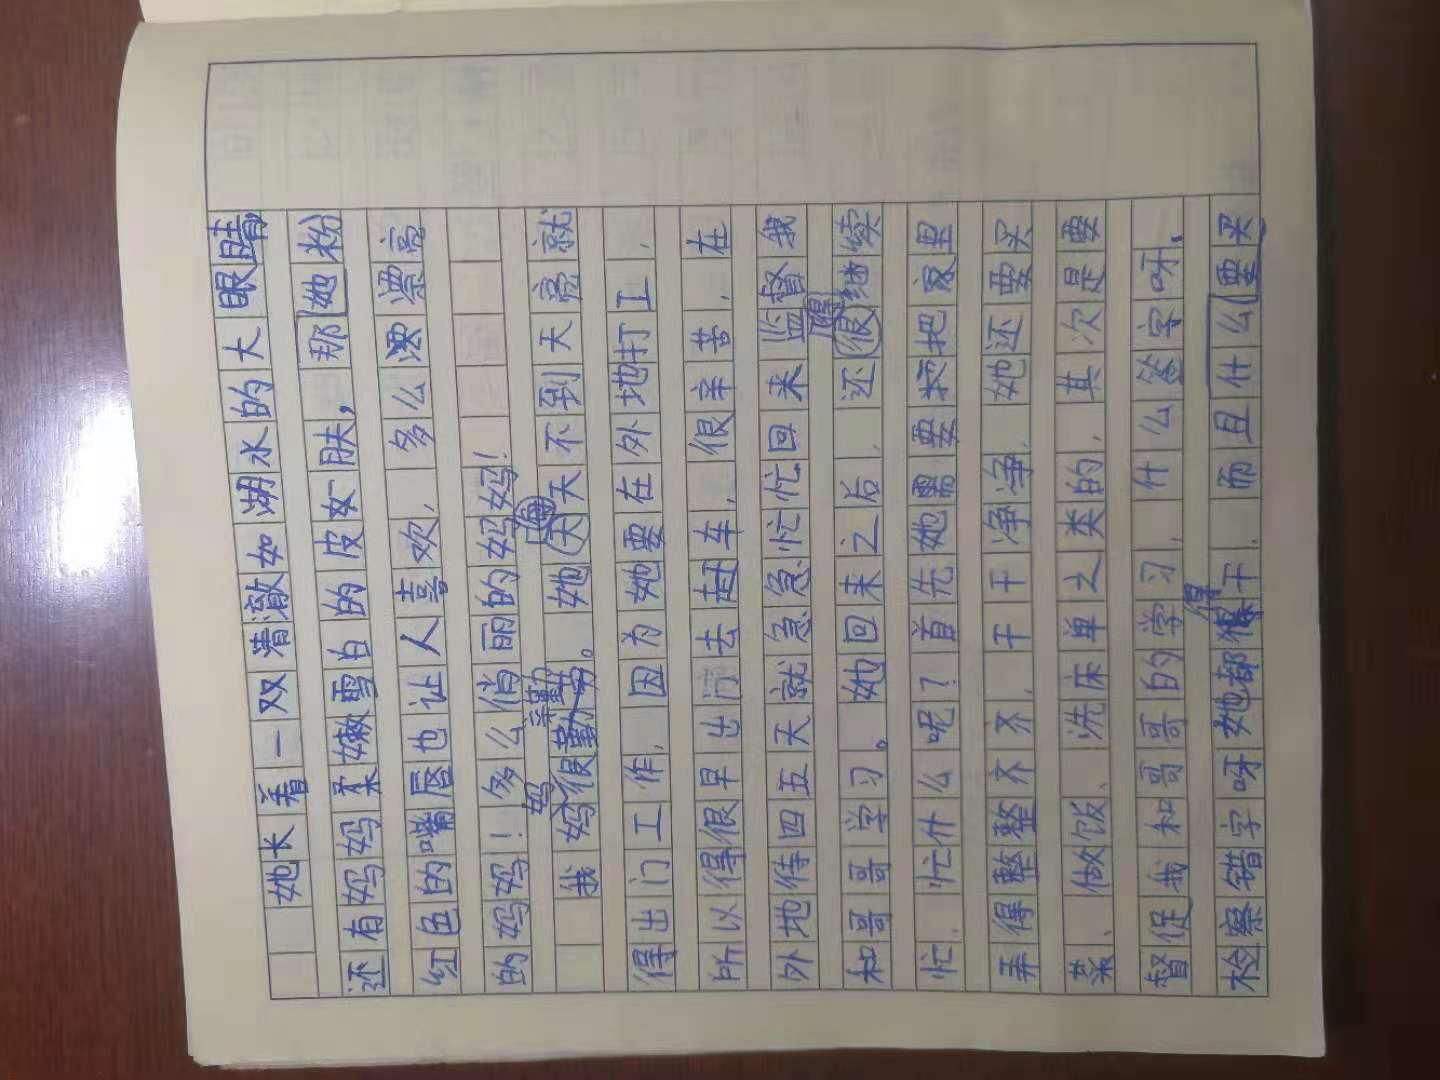 她长着一双清澈如湖水的大眼睛,
还有妈妈柔嫩雪白的皮肤,那她粉
红色的嘴唇也让人喜欢,多么漂亮
的妈妈!多么俏丽的妈妈!
我妈妈很勤劳。她每天天不到天亮就
得出门工作,因为她要在外地打工,
所以得很早出门去赶车,很辛苦,在
外地待四五天就急急忙忙回来监督我
和哥哥学习。她回来之后,还得很继续
忙,忙什么呢?首先她需要把家里
弄得整整齐齐,干干净净,她还要买
菜、做饭、洗床单之类的,其次是要
督促我和哥哥的学习,什么签字呀,
检察错字呀她都得干,而且什么要买